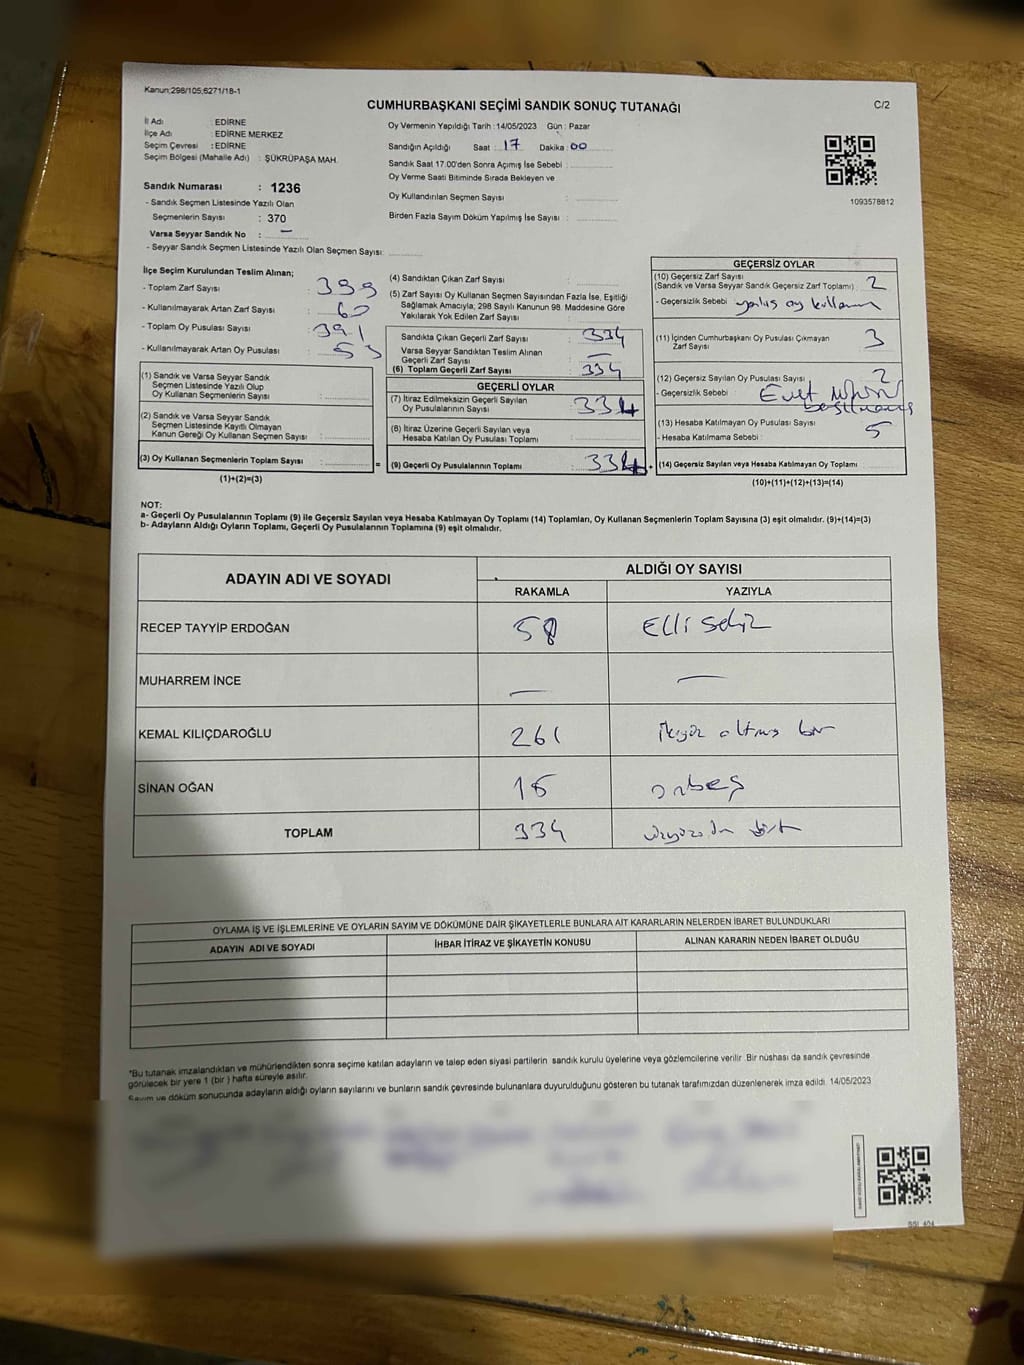 Kanun;298/105,6271/18-1
CUMHURBAŞKANI SEÇİMİ SANDIK SONUÇ TUTANAĞI
C/2
İl Adı : EDİRNE
İlçe Adı : EDİRNE MERKEZ
Seçim Çevresi : EDİRNE
Seçim Bölgesi (Mahalle Adı) : ŞÜKRÜPAŞA MAH.
Sandık Numarası : 1236
- Sandık Seçmen Listesinde Yazılı Olan
Seçmenlerin Sayısı : 370
Varsa Seyyar Sandık No : —
- Seyyar Sandık Seçmen Listesinde Yazılı Olan Seçmen Sayısı:
Oy Vermenin Yapıldığı Tarih : 14/05/2023 Gün : Pazar
Sandığın Açıldığı Saat : 17 Dakika : 00
Sandık Saat 17.00'den Sonra Açılmış İse Sebebi :
Oy Verme Saati Bitiminde Sırada Bekleyen ve
Oy Kullandırılan Seçmen Sayısı :
Birden Fazla Sayım Döküm Yapılmış İse Sayısı :
1093578812
İlçe Seçim Kurulundan Teslim Alınan;
- Toplam Zarf Sayısı : 399
- Kullanılmayarak Artan Zarf Sayısı : 60
- Toplam Oy Pusulası Sayısı : 391
- Kullanılmayarak Artan Oy Pusulası : 53
(1) Sandık ve Varsa Seyyar Sandık
Seçmen Listesinde Yazılı Olup
Oy Kullanan Seçmenlerin Sayısı :
(2) Sandık ve Varsa Seyyar Sandık
Seçmen Listesinde Kayıtlı Olmayan
Kanun Gereği Oy Kullanan Seçmen Sayısı :
(3) Oy Kullanan Seçmenlerin Toplam Sayısı :
(1)+(2)=(3)
(4) Sandıktan Çıkan Zarf Sayısı :
(5) Zarf Sayısı Oy Kullanan Seçmen Sayısından Fazla İse, Eşitliği
Sağlamak Amacıyla; 298 Sayılı Kanunun 98. Maddesine Göre
Yakılarak Yok Edilen Zarf Sayısı :
Sandıkta Çıkan Geçerli Zarf Sayısı : 334
Varsa Seyyar Sandıktan Teslim Alınan
Geçerli Zarf Sayısı : —
(6) Toplam Geçerli Zarf Sayısı : 334
GEÇERLİ OYLAR
(7) İtiraz Edilmeksizin Geçerli Sayılan
Oy Pusulalarının Sayısı : 334
(8) İtiraz Üzerine Geçerli Sayılan veya
Hesaba Katılan Oy Pusulası Toplamı :
= (9) Geçerli Oy Pusulalarının Toplamı : 334
GEÇERSİZ OYLAR
(10) Geçersiz Zarf Sayısı : 2
(Sandık ve Varsa Seyyar Sandık Geçersiz Zarf Toplamı)
- Geçersizlik Sebebi : yanlış oy kullanım
(11) İçinden Cumhurbaşkanı Oy Pusulası Çıkmayan
Zarf Sayısı : 3
(12) Geçersiz Sayılan Oy Pusulası Sayısı : 2
- Geçersizlik Sebebi : Evet mührü
basılmamış
(13) Hesaba Katılmayan Oy Pusulası Sayısı : 5
- Hesaba Katılmama Sebebi :
(14) Geçersiz Sayılan veya Hesaba Katılmayan Oy Toplamı
(10)+(11)+(12)+(13)=(14)
NOT:
a- Geçerli Oy Pusulalarının Toplamı (9) ile Geçersiz Sayılan veya Hesaba Katılmayan Oy Toplamı (14) Toplamları, Oy Kullanan Seçmenlerin Toplam Sayısına (3) eşit olmalıdır. (9)+(14)=(3)
b- Adayların Aldığı Oyların Toplamı, Geçerli Oy Pusulalarının Toplamına (9) eşit olmalıdır.
ADAYIN ADI VE SOYADI
ALDIĞI OY SAYISI
RAKAMLA YAZIYLA
RECEP TAYYİP ERDOĞAN 58 Elli sekiz
MUHARREM İNCE — —
KEMAL KILIÇDAROĞLU 261 ikiyüz altmış bir
SİNAN OĞAN 15 onbeş
TOPLAM 334 dört
OYLAMA İŞ VE İŞLEMLERİNE VE OYLARIN SAYIM VE DÖKÜMÜNE DAİR ŞİKAYETLERLE BUNLARA AİT KARARLARIN NELERDEN İBARET BULUNDUKLARI
ADAYIN ADI VE SOYADI İHBAR İTİRAZ VE ŞİKAYETİN KONUSU ALINAN KARARIN NEDEN İBARET OLDUĞU
*Bu tutanak imzalandıktan ve mühürlendikten sonra seçime katılan adayların ve talep eden siyasi partilerin sandık kurulu üyelerine veya gözlemcilerine verilir. Bir nüshası da sandık çevresinde
görülecek bir yere 1 (bir ) hafta süreyle asılır.
Sayım ve döküm sonucunda adayların aldığı oyların sayılarını ve bunların sandık çevresinde bulunanlara duyurulduğunu gösteren bu tutanak tarafımızdan düzenlenerek imza edildi. 14/05/2023